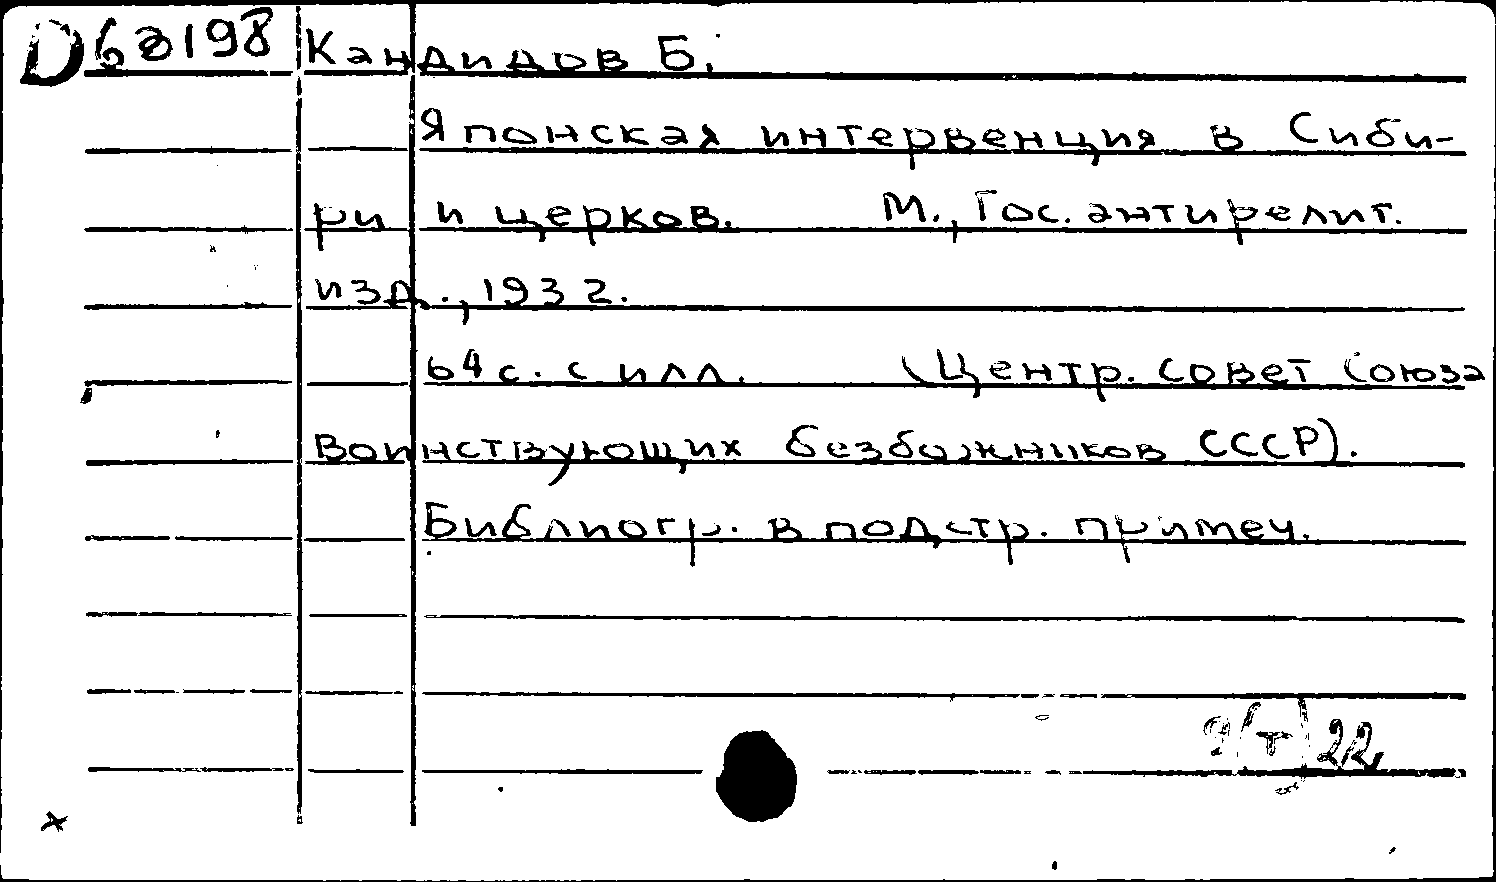 D 63/198 Кандидов Б.
Японская интервенция в Сиби-
ри и церков. М., Гос. антирелиг.
изд., 1932.
64 с. с илл. (Центр. совет Союза
Воинствующих безбожников СССР).
Библиогр. в подстр. примеч.
9(Т)22